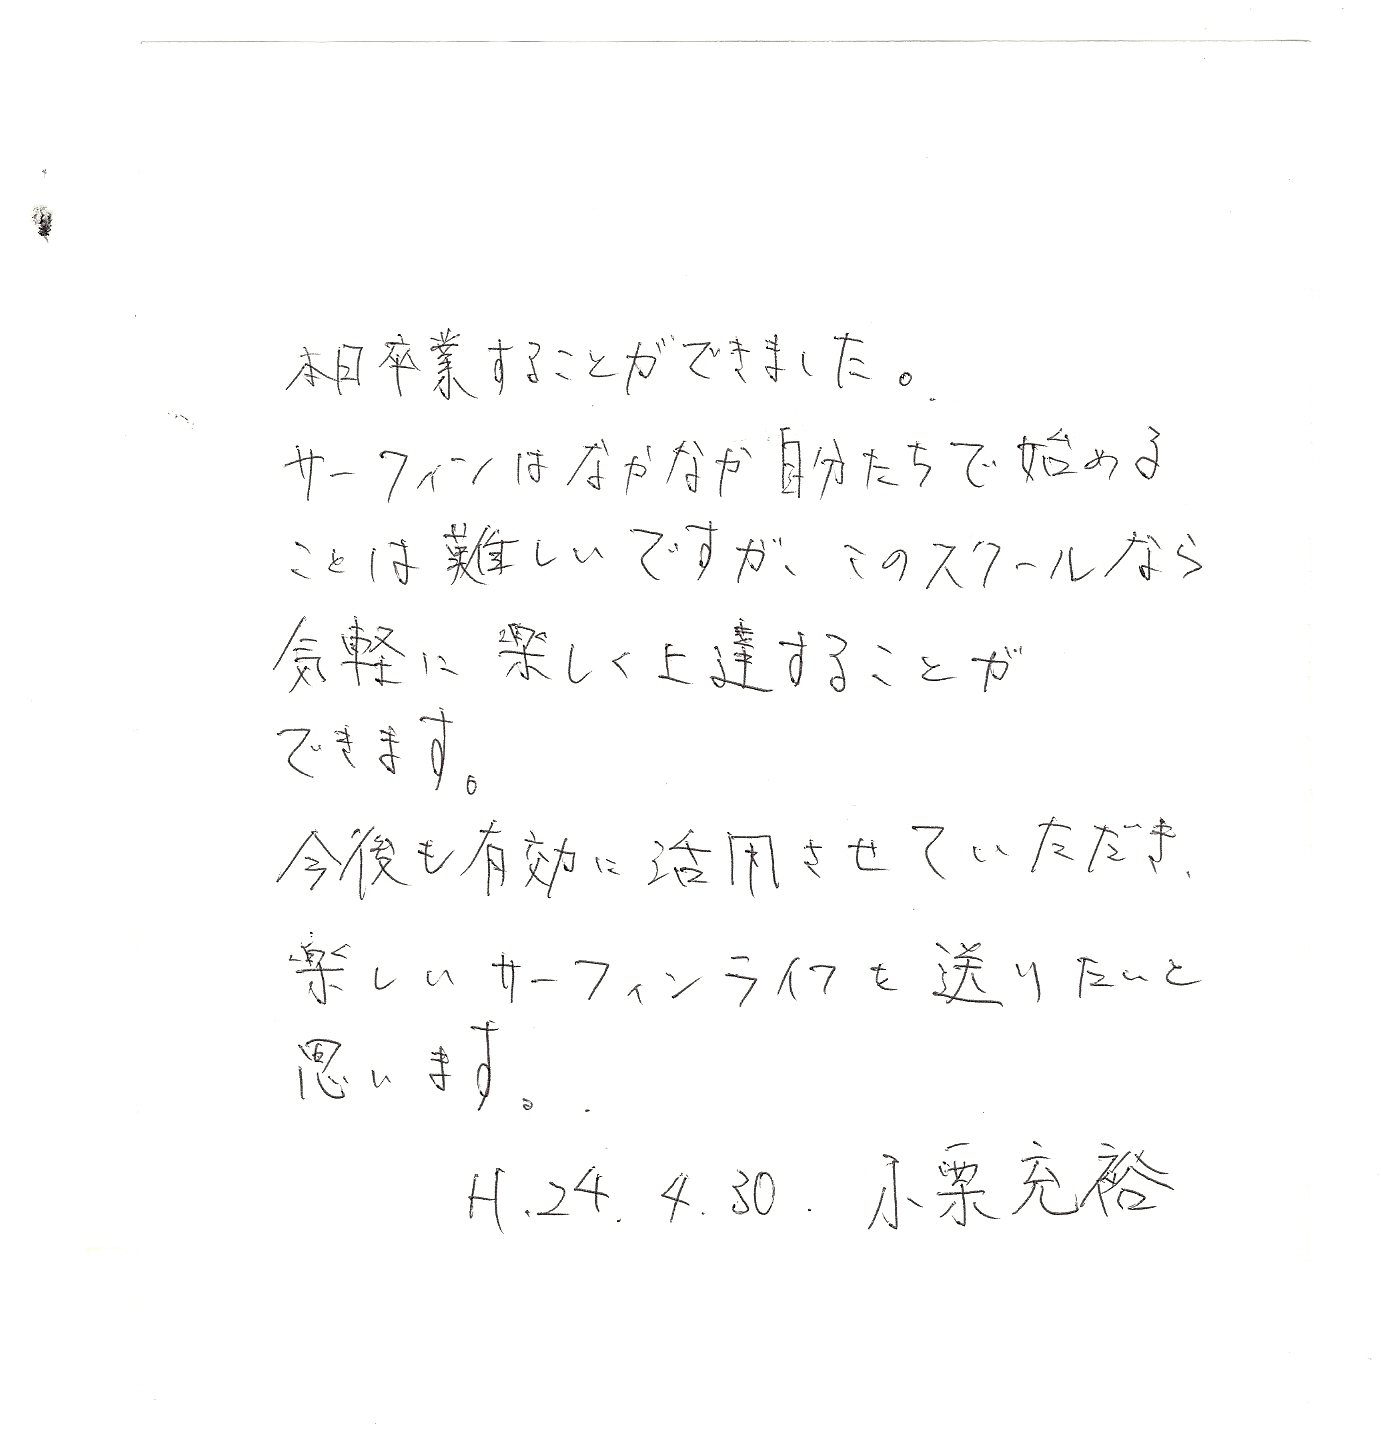 本日卒業することができました。
サーフィンはなかなか自分たちで始める
ことは難しいですが、このスクールなら
気軽に楽しく上達することが
できます。
今後も有効に活用させていただき、
楽しいサーフィンライフを送りたいと
思います。
H.24.4.30. 小栗充裕